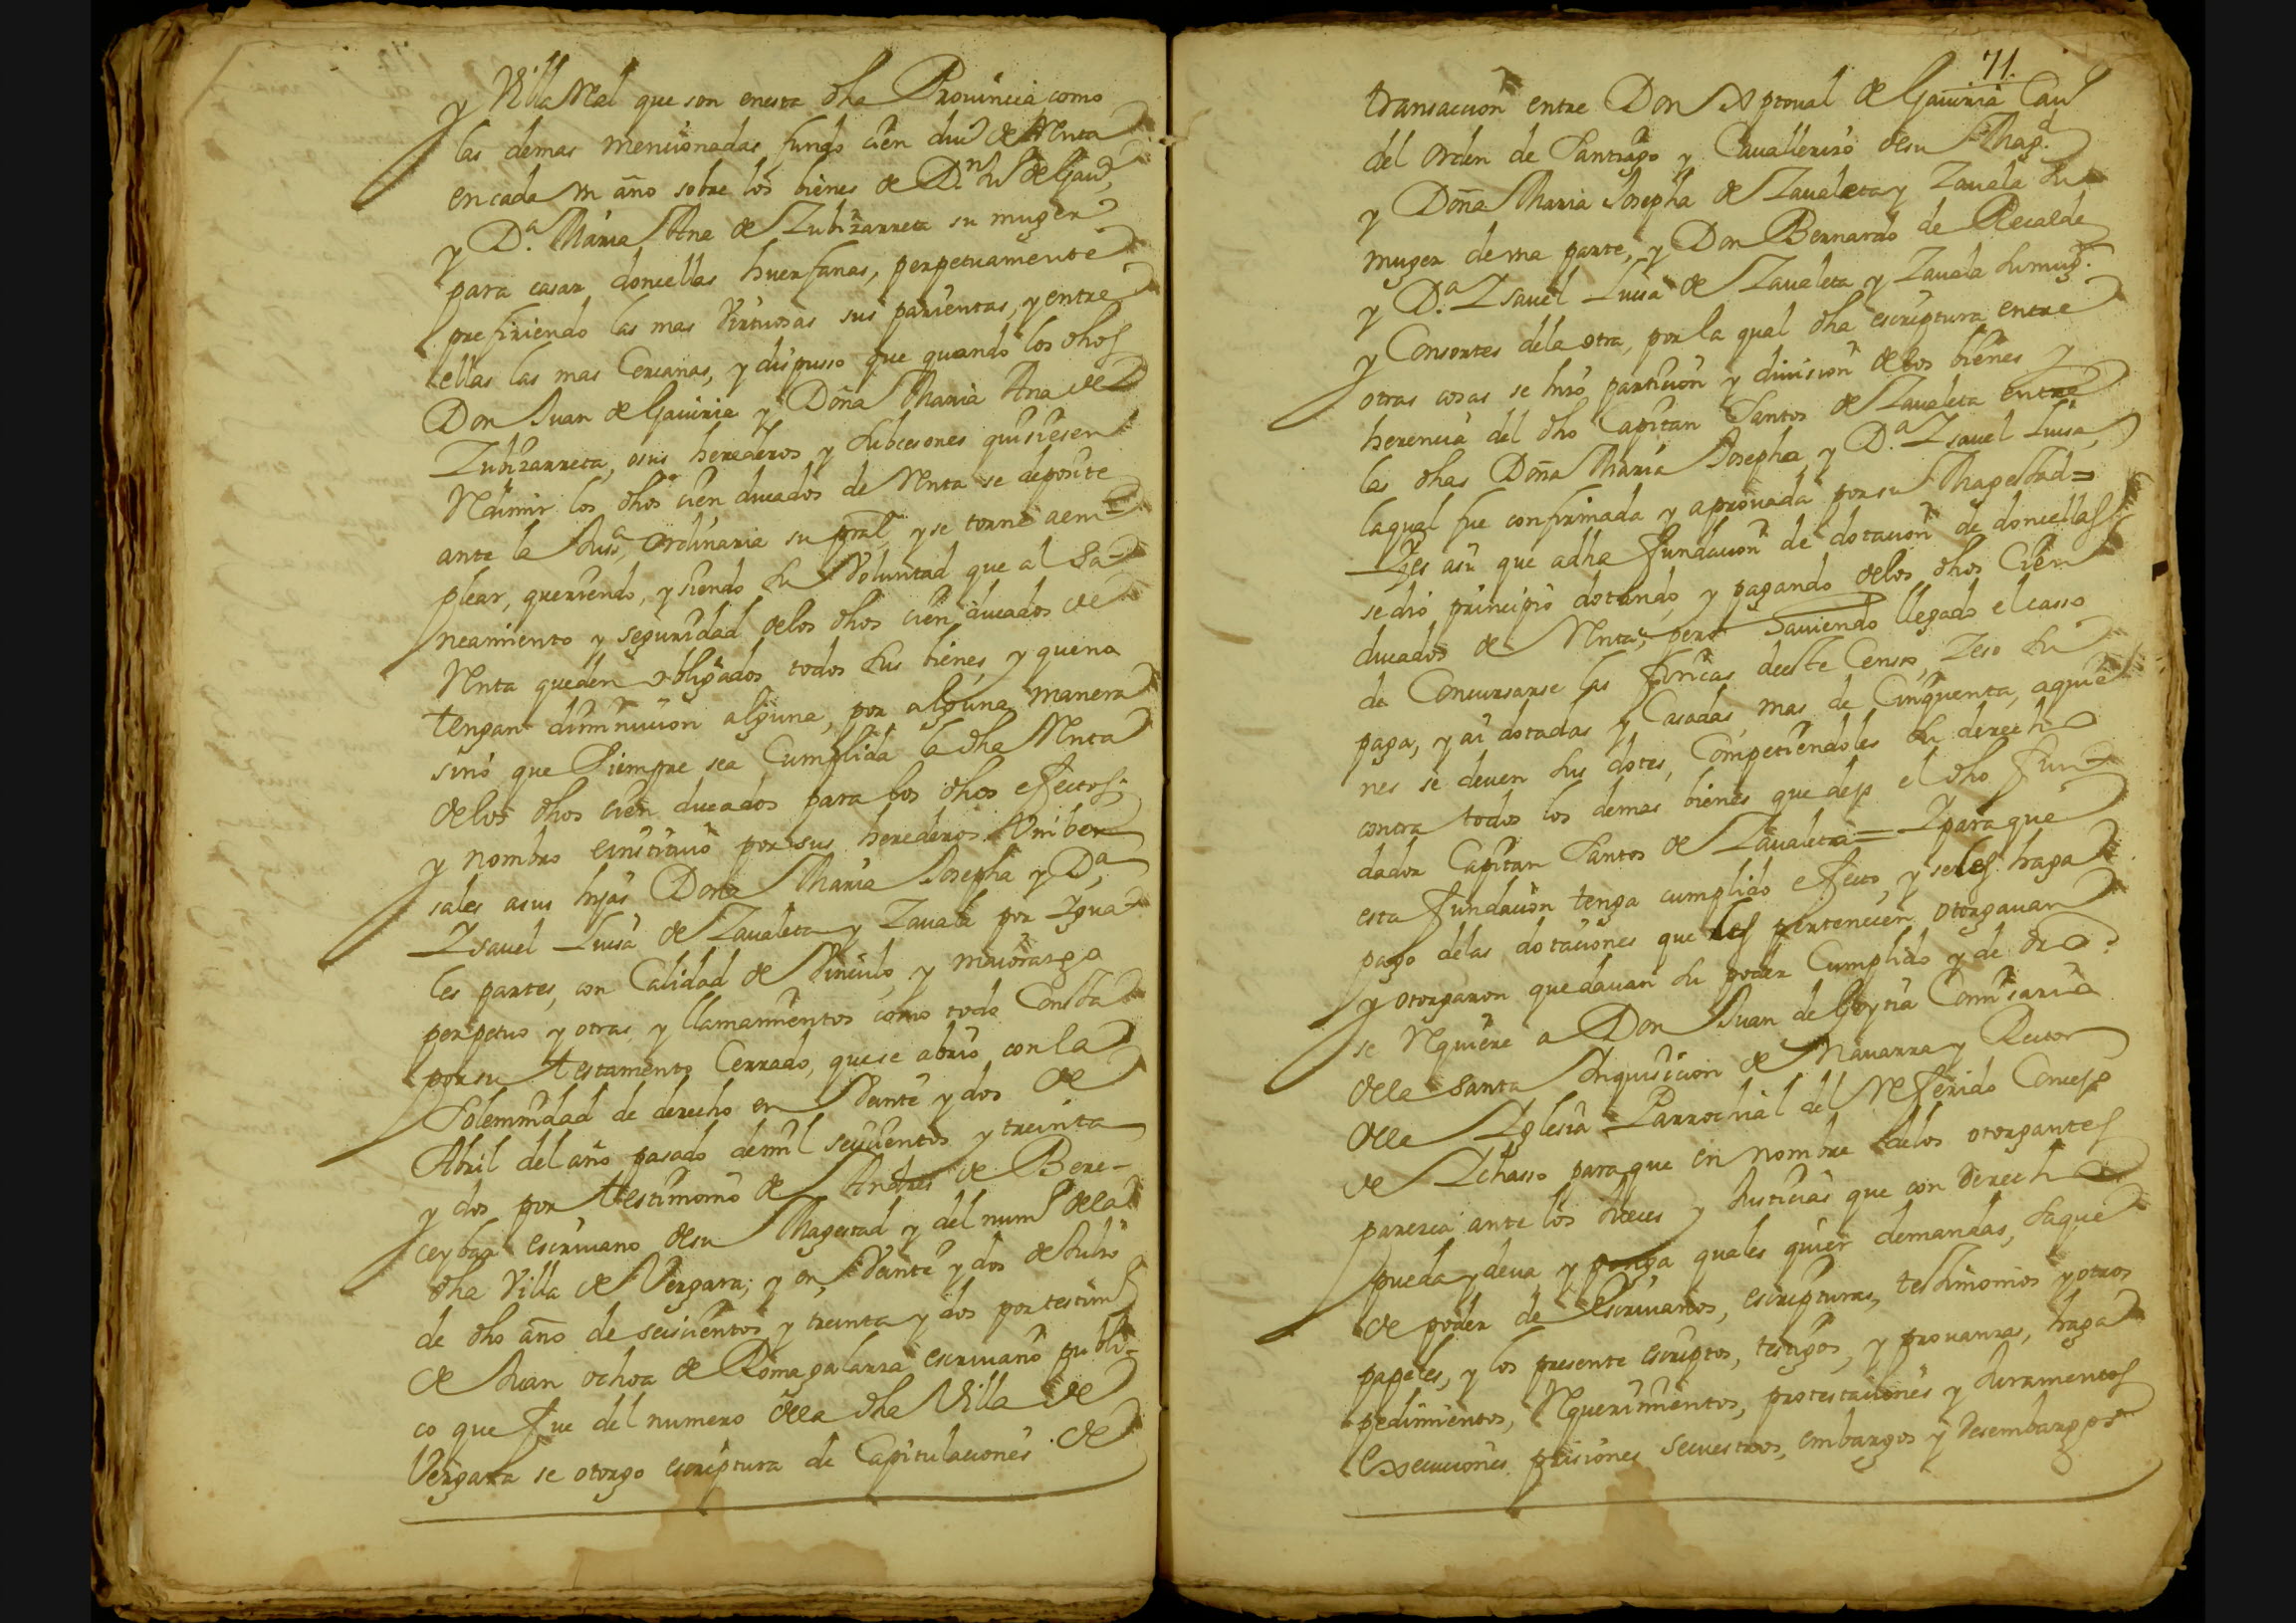 y Villa Real que son enesta dha Prouincia como
las demas mencionadas, fundo cien ducs de Renta
encada vn año sobre los bienes de Dn Ju de Gaua,
y Da. Maria Ana de Zubizarreta su muger
para casar doncellas huerfanas, perpetuamente
prefiriendo las mas virtuosas sus parientas, y entre
ellas las mas Cercanas, y dispusso que quando los dhos
Don Juan de Gauiria y Doña Maria Ana de
Zubizarreta, osus herederos y subcesores quisiesen
Redimir los dhos cien ducados de Renta se deposite
ante la Jussa, ordinaria su pral, y se torne aem=
plear, queriendo, y siendo su Voluntad que al Sa-
neamiento y seguridad delos dhos cien ducados de
Renta queden obligados todos sus bienes, y queno
tengan diminucion alguna, por alguna manera
sino que Siempre sea Cumplida la dha Renta
delos dhos cien ducados para los dhos effectos;
y nombro einstituio por sus herederos Vniber
sales asus hijas Doña Maria Josepha y Da,
Ysauel Luisa de Zaualeta y Zauala por Ygua-
les partes, con Calidad de Vinculo, y maiorazgo
perpetuo y otras, y llamamientos como todo Consta
por su testamento Cerrado, que se abrio con la
Solemnidad de derecho en Veinte y dos de
Abril del año pasado demil seiscientos y treinta
y dos por testimonio de Andres de Bere-
ceybar escriuano desu Magestad y del numo dela
dha Villa de Vergara; y en Veinte y dos de Julio
de dho año de seiscientos y treinta y dos por testimo
de Juan ochoa de Romagalarza escriuano publi-
co que fue del numero dela dha Villa de
Vergara se otorgo escriptura de Capitulaciones de
71.
transacion entre Don Xptoual de Gauiria Cauo
del Orden de Santiago y Caualleriro desu Magd.
y Doña Maria Josepha de Zaualeta y Zauala su
muger de vna parte, y Don Bernardo de Recalde
y Da. Ysauel Luisa de Zaualeta y Zauala su mugr.
y Consortes dela otra, por la qual dha escriptura entre
otras cosas se hizo particion y diuision delos bienes y
herencia del dho Capitan Santos de Zaualeta entre
las dhas Doña Maria Josepha y Da. Ysauel Luisa,
laqual fue confirmada y aprouada por su Magestad=
Yes asi que adha fundacion de dotacion de doncellas
sedio principio dotando, y pagando delos dhos Cien
ducados de Renta; pero Sauiendo llegado el casso
de Concursarse las fincas deeste Censo, Zeso su
paga, y ai dotadas y Casadas mas de Cinquenta, aquie
nes se deuen sus dotes, Competiendoles su derecho
contra todos los demas bienes que dejo el dho fun-
dador Capitan Santos de Zaualeta= Y para que
esta fundacion tenga cumplido efecto, y seles haga
pago delas dotaciones que les pertenecen otorgauan
y otorgaron quedauan su poder Cumplido y de dro
se Requiere a Don Juan de Goytia Comisario
dela Santa Inquisicion de Nauarra y Rector
dela Yglesia Parrochial del Referido Concejo
de Ychasso para que en nombre delos otorgantes
parezca ante los Jueces y Justicias que con derecho
pueda y deua, y ponga quales quier demandas, saque
de poder de escriuanos, escripturas, testimonios y otros
papeles, y los presente escriptos, testigos, y prouanzas, haga
pedimientos, Requerimientos, protestaciones y Juramentos
execuciones prisiones secuestros, embargos y desembargos